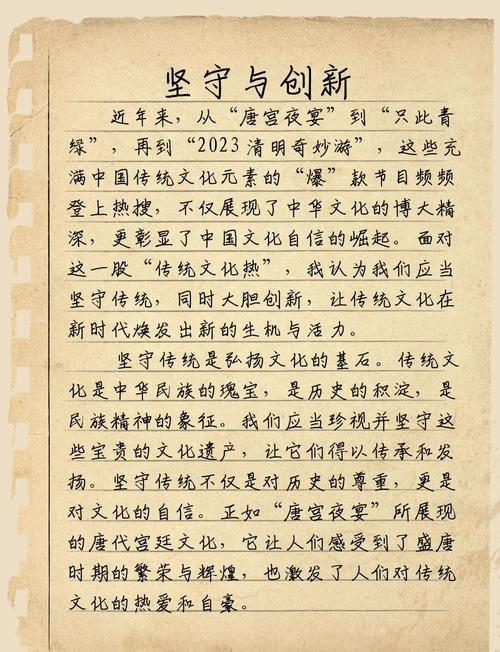 坚守与创新
近年来，从“唐宫夜宴”到“只此青
绿”，再到“2023清明奇妙游”，这些充
满中国传统文化元素的“爆”款节目频频
登上热搜，不仅展现了中华文化的博大精
深，更彰显了中国文化自信的崛起。面对
这一股“传统文化热”，我认为我们应当
坚守传统，同时大胆创新，让传统文化在
新时代焕发出新的生机与活力。
坚守传统是弘扬文化的基石。传统文
化是中华民族的瑰宝，是历史的积淀，是
民族精神的象征。我们应当珍视并坚守这
些宝贵的文化遗产，让它们得以传承和发
扬。坚守传统不仅是对历史的尊重，更是
对文化的自信。正如“唐宫夜宴”所展现
的唐代宫廷文化，它让人们感受到了盛唐
时期的繁荣与辉煌，也激发了人们对传统
文化的热爱和自豪。